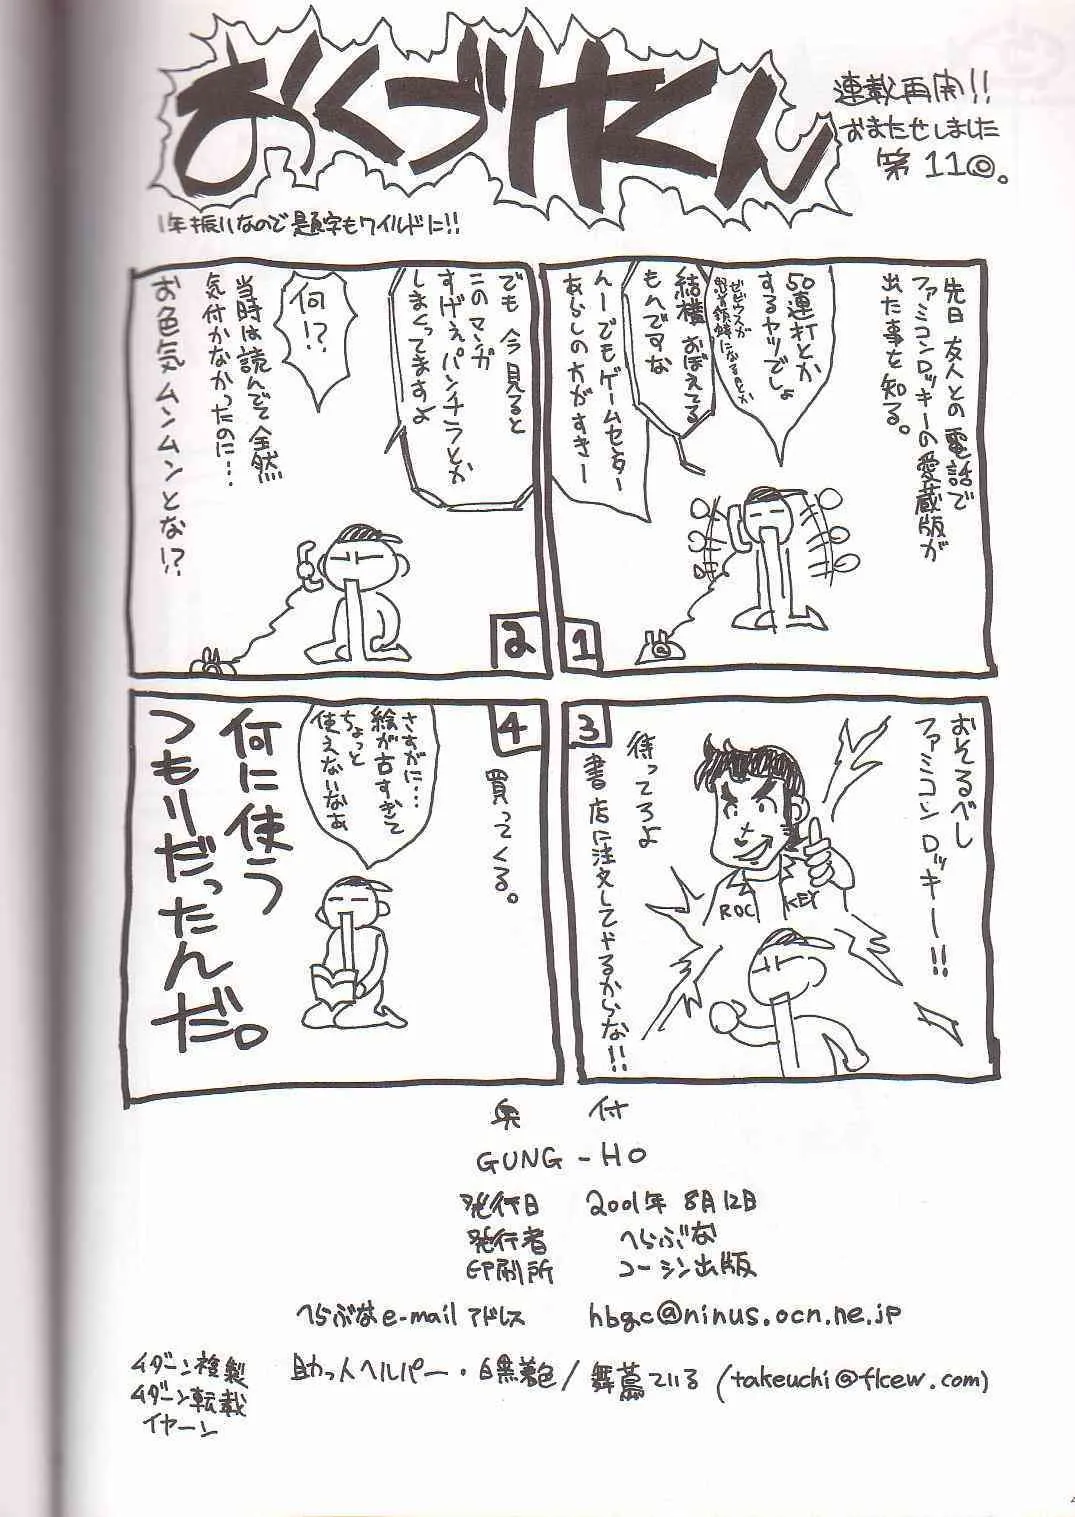 おくづけくん
連載再開!!
おまたせしました
第11回。
1年振りなので題字もワイルドに!!
先日友人との電話で
ファミコンロッキーの愛蔵版が
出た事を知る。
50連打とか
するヤツでしょ
ゼビウスが
結構おぼえてる
もんですな
んーでもゲームセンター
あらしの方がすきー
1
でも今見ると
このマンガ
すげぇパンチラとか
しまくってますよ
何!?
当時は読んでて全然
気付かなかったのに…
お色気ムンムンとな!?
2
おそるべし
ファミコンロッキー!!
ROC KEY
待ってろよ
書店に注文してやるからな!!
3
買ってくる。
さすがに…
絵が古すぎて
ちょっと
使えないなぁ
何に使う
つもりだったんだ。
4
奥付
GUNG-HO
発行日 2001年8月12日
発行者 へらぶな
印刷所 コーシン出版
へらぶなe-mailアドレス hbgc@ninus.ocn.ne.jp
助っ人ヘルパー・白黒着色/舞蔦ている (takeuchi@flcew.com)
ムダーン複製
ムダーン転載
イヤーン